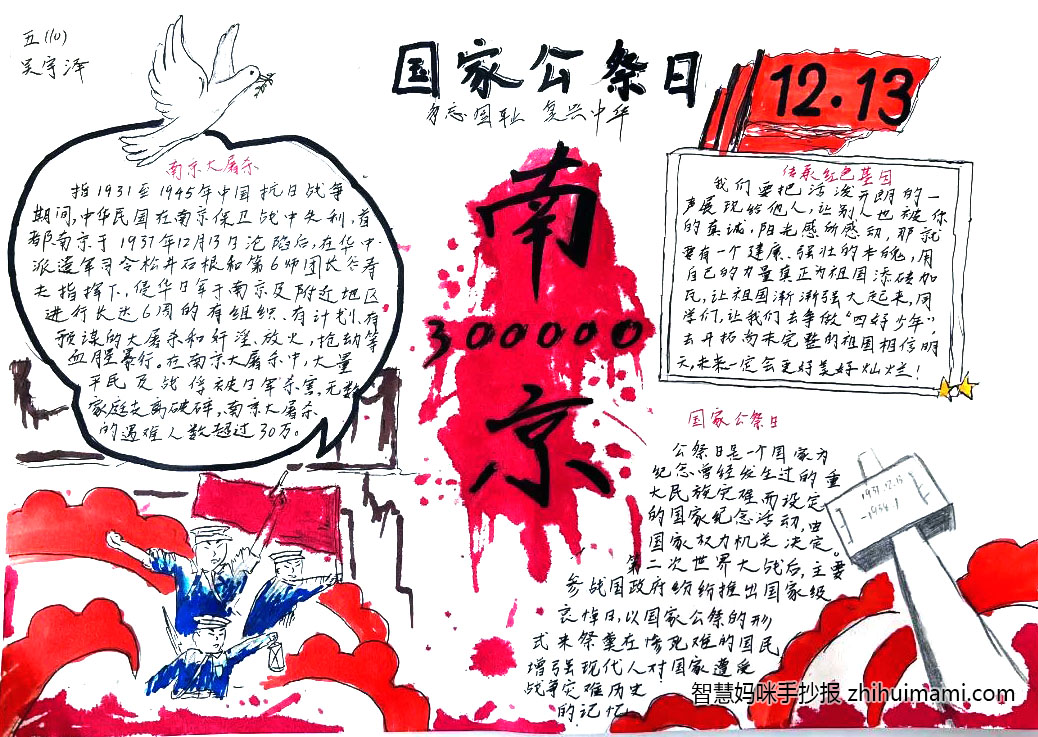 五(10)
吴宇泽
国家公祭日
勿忘国耻 复兴中华
12.13
南京大屠杀
指1931至1945年中国抗日战争
期间,中华民国在南京保卫战中失利,首
都南京于1937年12月13日沦陷后,在华中
派遣军司令松井石根和第6师团长谷寿
夫指挥下,侵华日军于南京及附近地区
进行长达6周的有组织、有计划、有
预谋的大屠杀和奸淫、放火、抢劫等
血腥暴行。在南京大屠杀中,大量
平民及战俘被日军杀害,无数
家庭支离破碎,南京大屠杀
的遇难人数超过30万。
南
300000
京
传承红色基因
我们要把活泼开朗的一
声展现给他人,让别人也被你
的真诚,阳光感所感动,那就
要有一个健康、强壮的体魄,用
自己的力量真正为祖国添砖加
瓦,让祖国渐渐强大起来,同
学们,让我们去争做“四好少年”,
去开拓尚未完整的祖国相信明
天,未来一定会更好美好灿烂!
国家公祭日
公祭日是一个国家为
纪念曾经发生过的重
大民族灾难而设定
的国家纪念活动,由
国家权力机关决定。
第二次世界大战后,主要
参战国政府纷纷推出国家级
哀悼日,以国家公祭的形
式来祭奠在惨死难的国民
增强现代人对国家遭受
战争灾难历史
的记忆
1937.12.13
-1938.1
智慧妈咪手抄报 zhihuimami.com